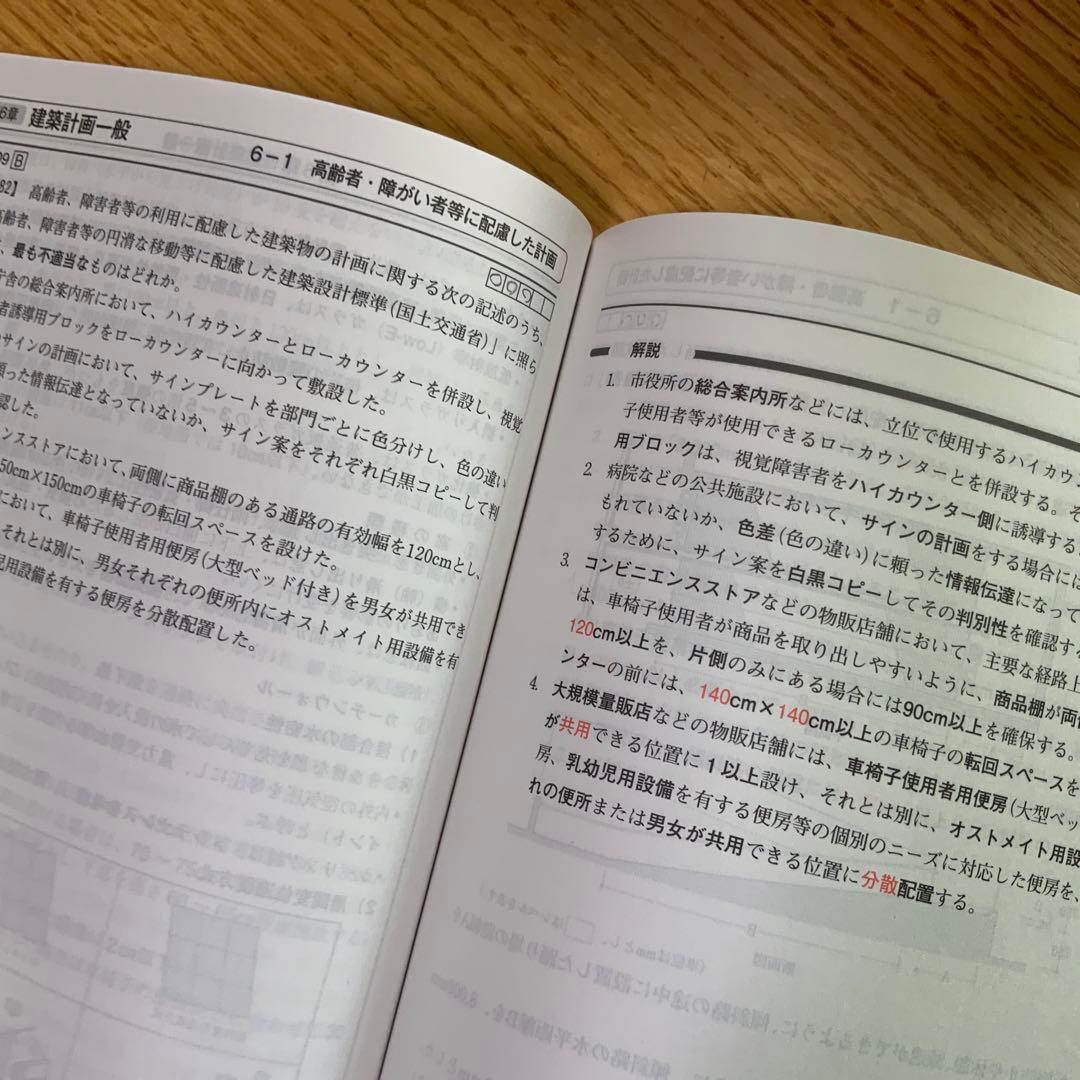 6章 建築計画一般
6−1 高齢者・障がい者等に配慮した計画
09 B
82】 高齢者、障害者等の利用に配慮した建築物の計画に関する次の記述のうち、
高齢者、障害者等の円滑な移動等に配慮した建築設計標準(国土交通省)」に照ら
、最も不適当なものはどれか。
庁舎の総合案内所において、ハイカウンターとローカウンターを併設し、視覚
者誘導用ブロックをローカウンターに向かって敷設した。
のサインの計画において、サインプレートを部門ごとに色分けし、色の違い
頼った情報伝達となっていないか、サイン案をそれぞれ白黒コピーして判
認した。
ンスストアにおいて、両側に商品棚のある通路の有効幅を120cmとし、
50cm×150cmの車椅子の転回スペースを設けた。
において、車椅子使用者用便房(大型ベッド付き)を男女が共用でき
それとは別に、男女それぞれの便所内にオストメイト用設備を有
児用設備を有する便房を分散配置した。
解説
1. 市役所の総合案内所などには、立位で使用するハイカウン
子使用者等が使用できるローカウンターとを併設する。そ
用ブロックは、視覚障害者をハイカウンター側に誘導する
2. 病院などの公共施設において、サインの計画をする場合には
もれていないか、色差(色の違い)に頼った情報伝達になって
するために、サイン案を白黒コピーしてその判別性を確認す
3. コンビニエンスストアなどの物販店舗において、主要な経路上
は、車椅子使用者が商品を取り出しやすいように、商品棚が両側
120cm以上を、片側のみにある場合には90cm以上を確保する。
ンターの前には、140cm×140cm以上の車椅子の転回スペースを
4. 大規模量販店などの物販店舗には、車椅子使用者用便房(大型ベッ
が共用できる位置に1以上設け、それとは別に、オストメイト用設
房、乳幼児用設備を有する便房等の個別のニーズに対応した便房を、
れの便所または男女が共用できる位置に分散配置する。